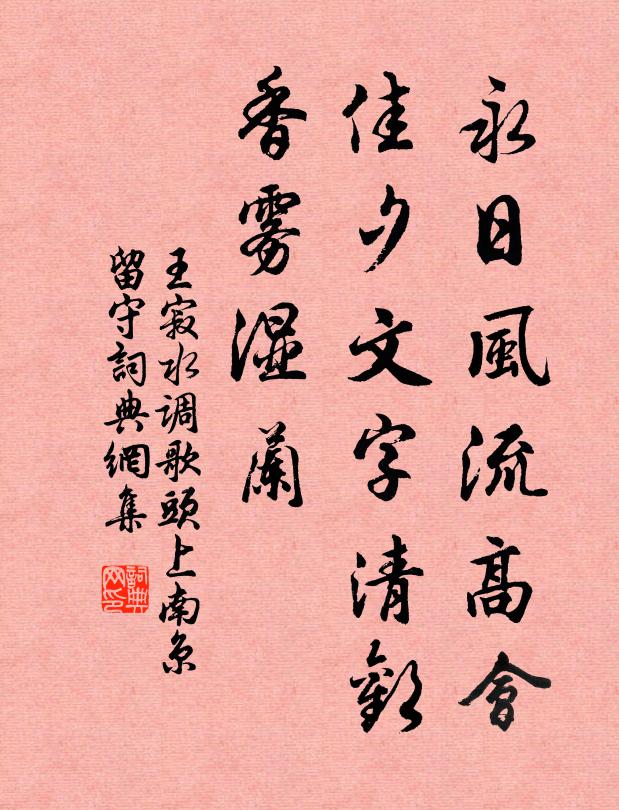 永日風流高會
佳夕文字清歡
香霧湿蘭
王寂水调歌頭上南京
留守詞典網集
詞典网印